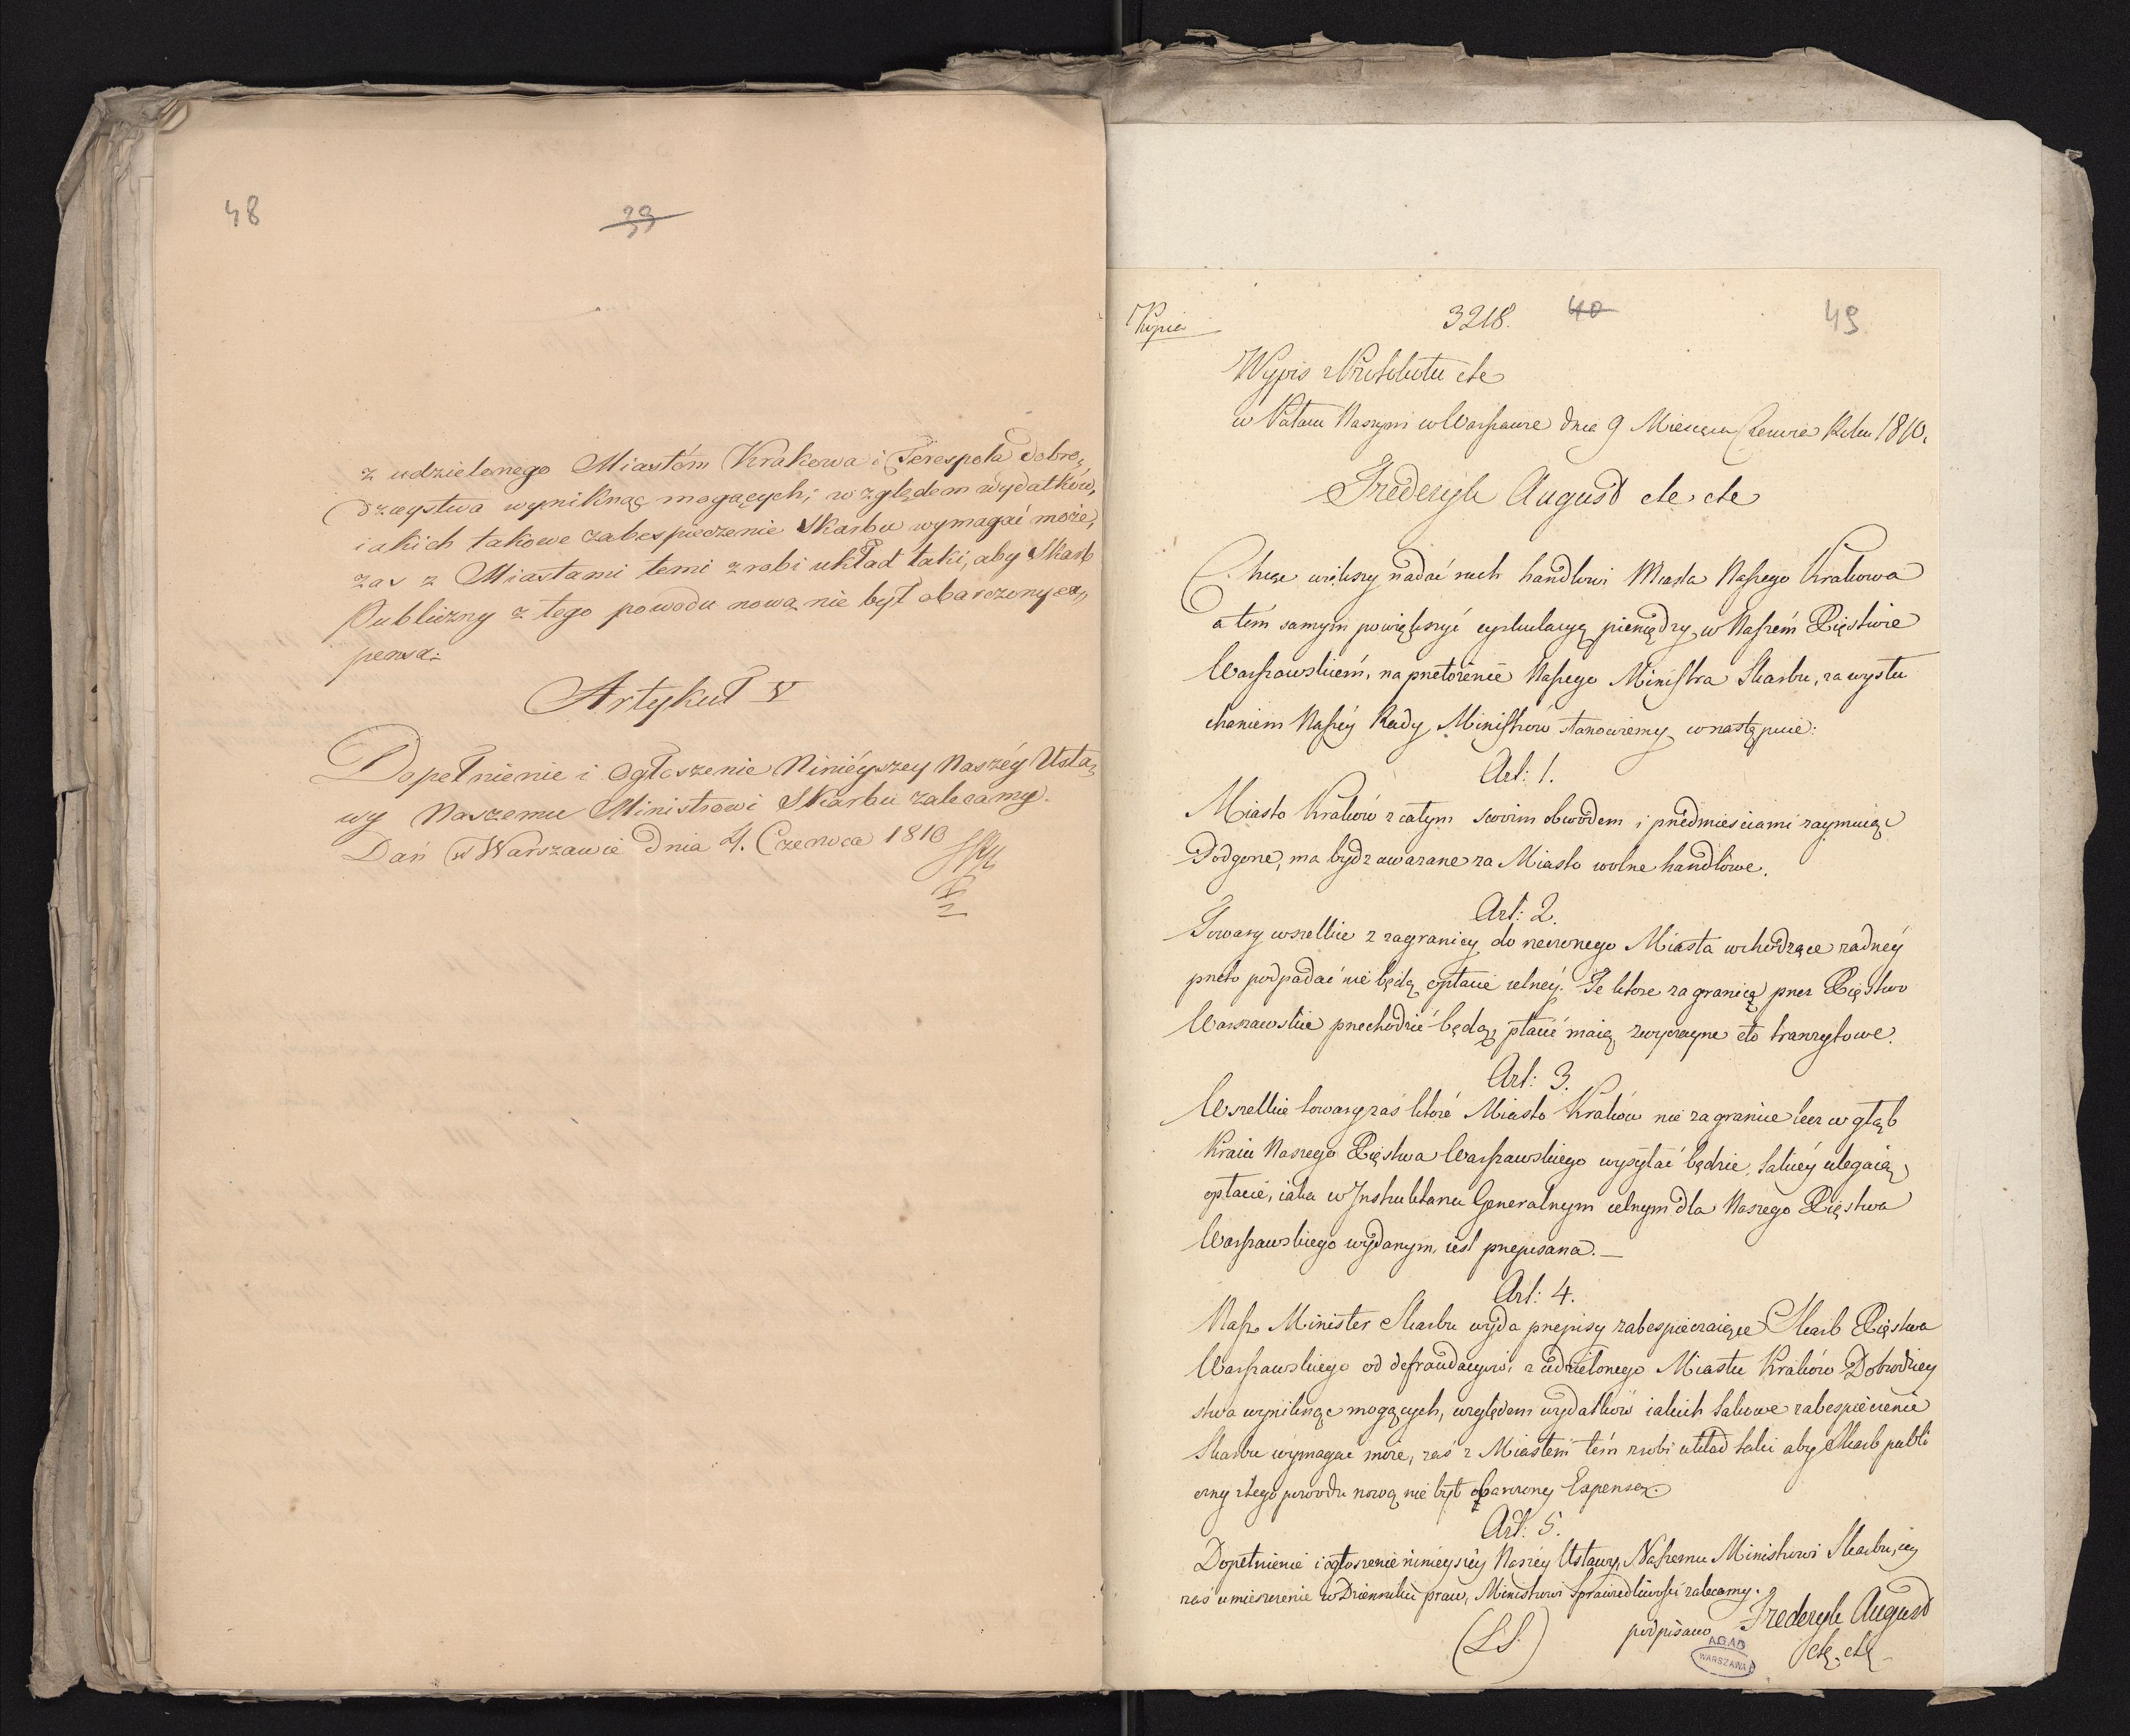 48
39
z udzielonego Miastóm Krakowa i Terespola dobro„
dzieystwa wyniknąć mogących; względem wydatków,
iakich takowe zabespieczenie Skarbu wymagać może,
zas z Miastami temi zrobi układ taki, aby Skarb
Publiczny z tego powodu nową nie był obarczony ex„
pensą.
Artykuł V
Dopełnienie i Ogłoszenie Ninieyszey Naszéy Usta„
wy Naszemu Ministrowi Skarbu zalecamy.
Dań w Warszawie Dnia 4. Czerwca 1810
Kopia
3218.
40
49
Wypis z Protokułu etc
w Pałacu Naszym w Warszawie dnia 9 Miesiąca Czerwca Roku 1810.
Frederyk August etc. etc
Chcąc większy nadać ruch handlowi Miasta Naszego Krakowa
a tém samym powiększyć cyrkulacyą pieniędzy w Naszém Xięstwie
Warszawskiem, na przełożenie Naszego Ministra Skarbu, za wysłu
chaniem Naszéy Rady Ministrów stanowiemy co następuie:
Art: 1.
Miasto Kraków z całym swoim obwodem i przedmieściami zaymuiąc
Podgorze, ma bydz uwazane za Miasto wolne handlowe.
Art: 2.
Towary wszelkie z zagranicy do rzeczonego Miasta wchodzące zadnéy
przeto podpadać nie będą opłacie celnéy. Te ktore za granicę przez Xięstwo
Warszawskie przechodzić będą, płacić maią zwyczayne cło tranzytowe.
Art: 3.
Wszelkie towary zaś ktoré Miasto Kraków nie za granice lecz w głąb
Kraiu Naszego Xięstwa Warszawskiego wysyłać będzie, takiéy ulegaią
opłacie, iaka w Instruktarzu Generalnym celnym dla Naszego Xięstwa
Warszawskiego wydanym, iest przepisana. —
Art: 4.
Nasz Minister Skarbu wyda przepisy zabespieczaiące Skarb Xięstwa
Warszawskiego od defraudacyów, z udzielonego Miastu Kraków Dobrodziey
stwa wyniknąc mogących, względem wydatków iakich takowe zabespieczenie
Skarbu wymagac może, zaś z Miastem tém zrobi układ taki aby Skarb publi
czny z tego powodu nową nie był obarczony Expensą.
Art: 5.
Dopełnienie i ogłoszenie ninieyszéy Naszéy Ustawy, Naszemu Ministrowi Skarbu, iey
zaś umieszczenie w Dzienniku praw, Ministrowi Sprawiedliwości zalecamy.
podpisano Frederyk August
(L.S.)
etc. etc.
A.G.A.D
WARSZAWA